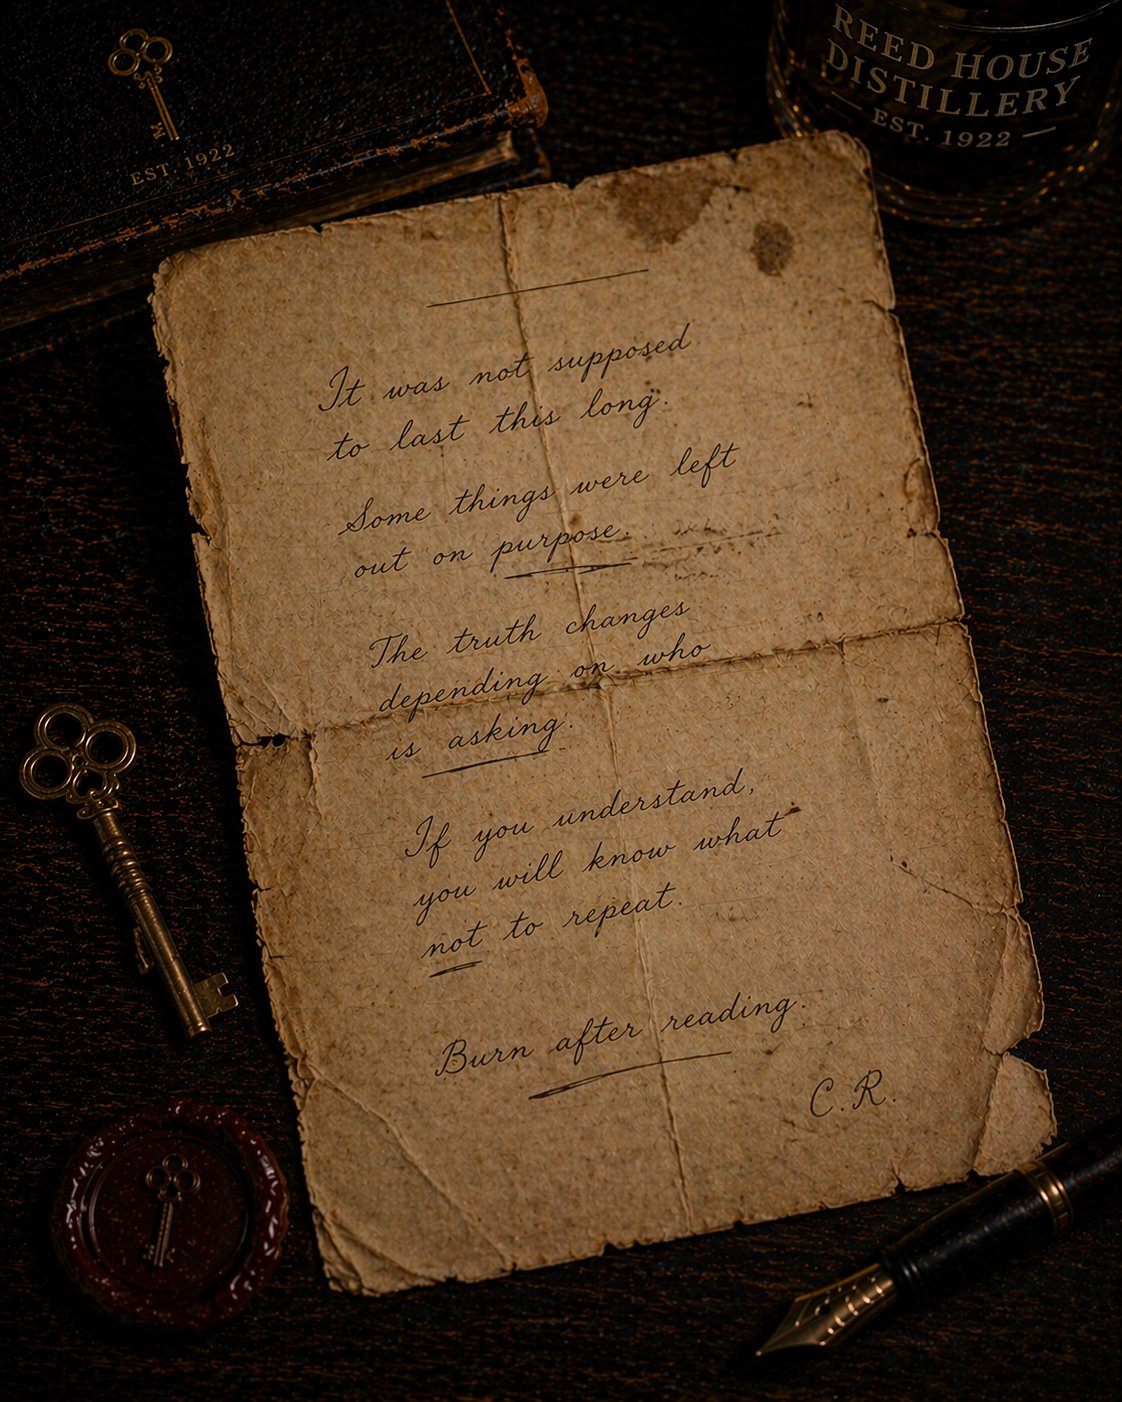 EST. 1922
REED HOUSE
DISTILLERY
EST. 1922
It was not supposed
to last this long.
Some things were left
out on purpose.
The truth changes
depending on who
is asking.
If you understand,
you will know what
not to repeat.
Burn after reading.
C.R.